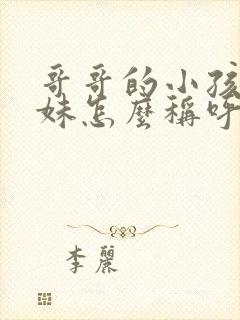 哥哥的小孩
妹怎麼稱呼
李麗